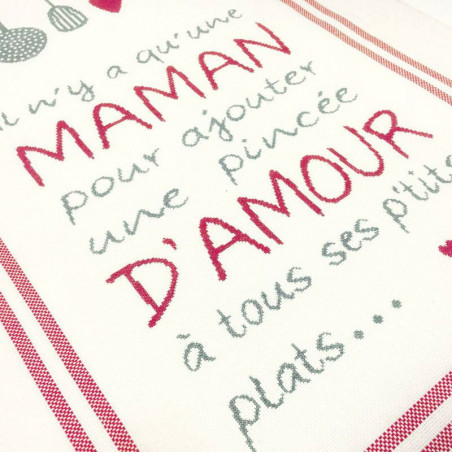 Il n'y a qu'une
MAMAN
pour ajouter
une pincée
D'AMOUR
à tous ses p'tits
plats...